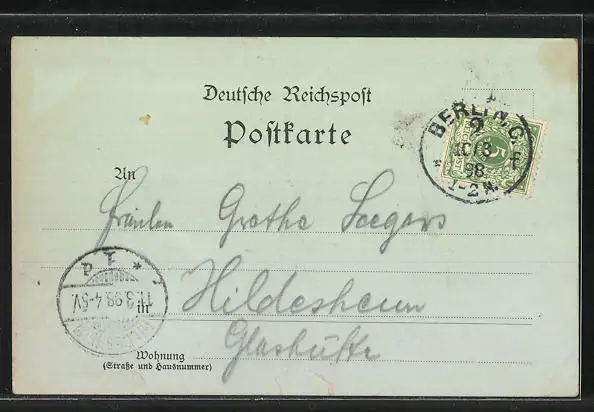 Deutsche Reichspost
Postkarte
BERLIN, C.
2
10/3
98
1-2 N.
f
5
An
Fräulen Grethe Seegers
11.3.98.4-5V.
in
Hildesheim
Glashütte
Wohnung
(Straße und Hausnummer)